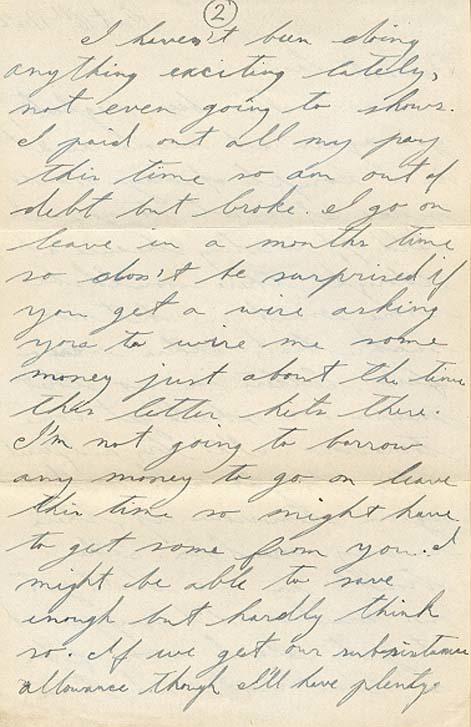 2
I haven't been doing
anything exciting lately,
not even going to shows.
I paid out all my pay
this time so am out of
debt but broke. I go on
leave in a months time
so don't be surprised if
you get a wire asking
you to wire me some
money just about the time
this letter hits there.
I'm not going to borrow
any money to go on leave
this time so might have
to get some from you. I
might be able to save
enough but hardly think
so. If we get our subsistance
allowance though I'll have plenty.